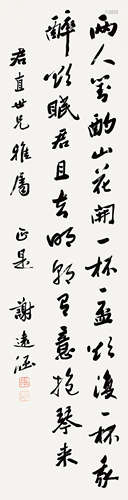 兩人對酌山花開一杯一盃復一杯我
醉欲眠君且去明朝有意抱琴来
君直世兄雅屬 正是 謝遠涵